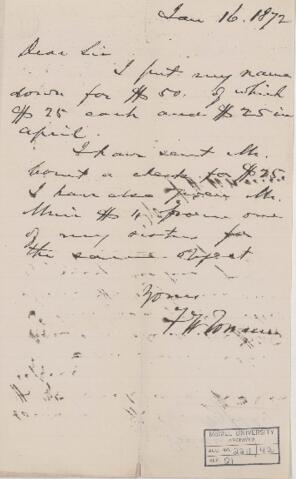 Jan 16. 1872
Dear Sir
I put my name
down for $50. of which
$25 each and $25 in
april.
I have sent Mr.
a check for $25
I have also given Mr.
Muir $4 from one
of my sisters for
the same object
Yours
F. W.
McGILL UNIVERSITY
ARCHIVES
ACC. NO. 221 / 42
REF. 21